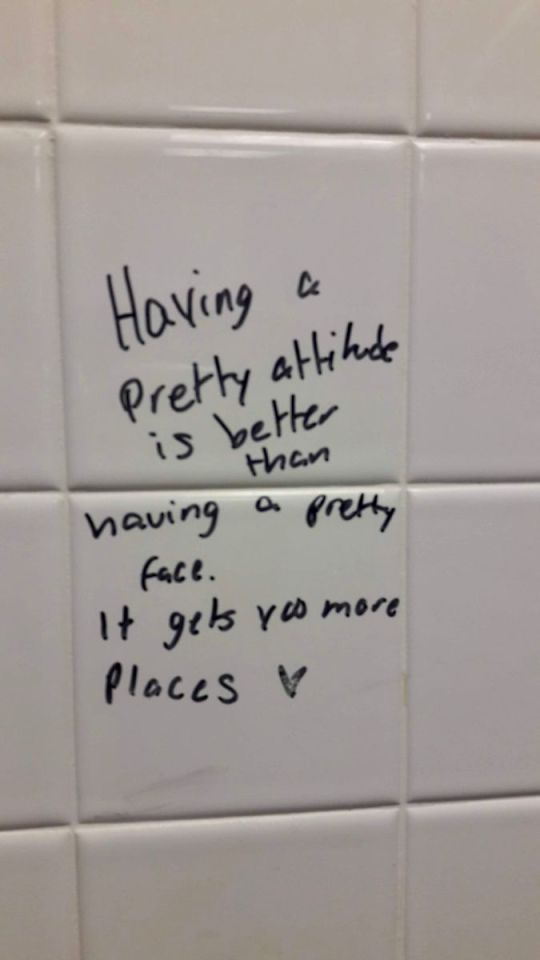 Having a
pretty attitude
is better
than
having a pretty
face.
It gets you more
places ♥